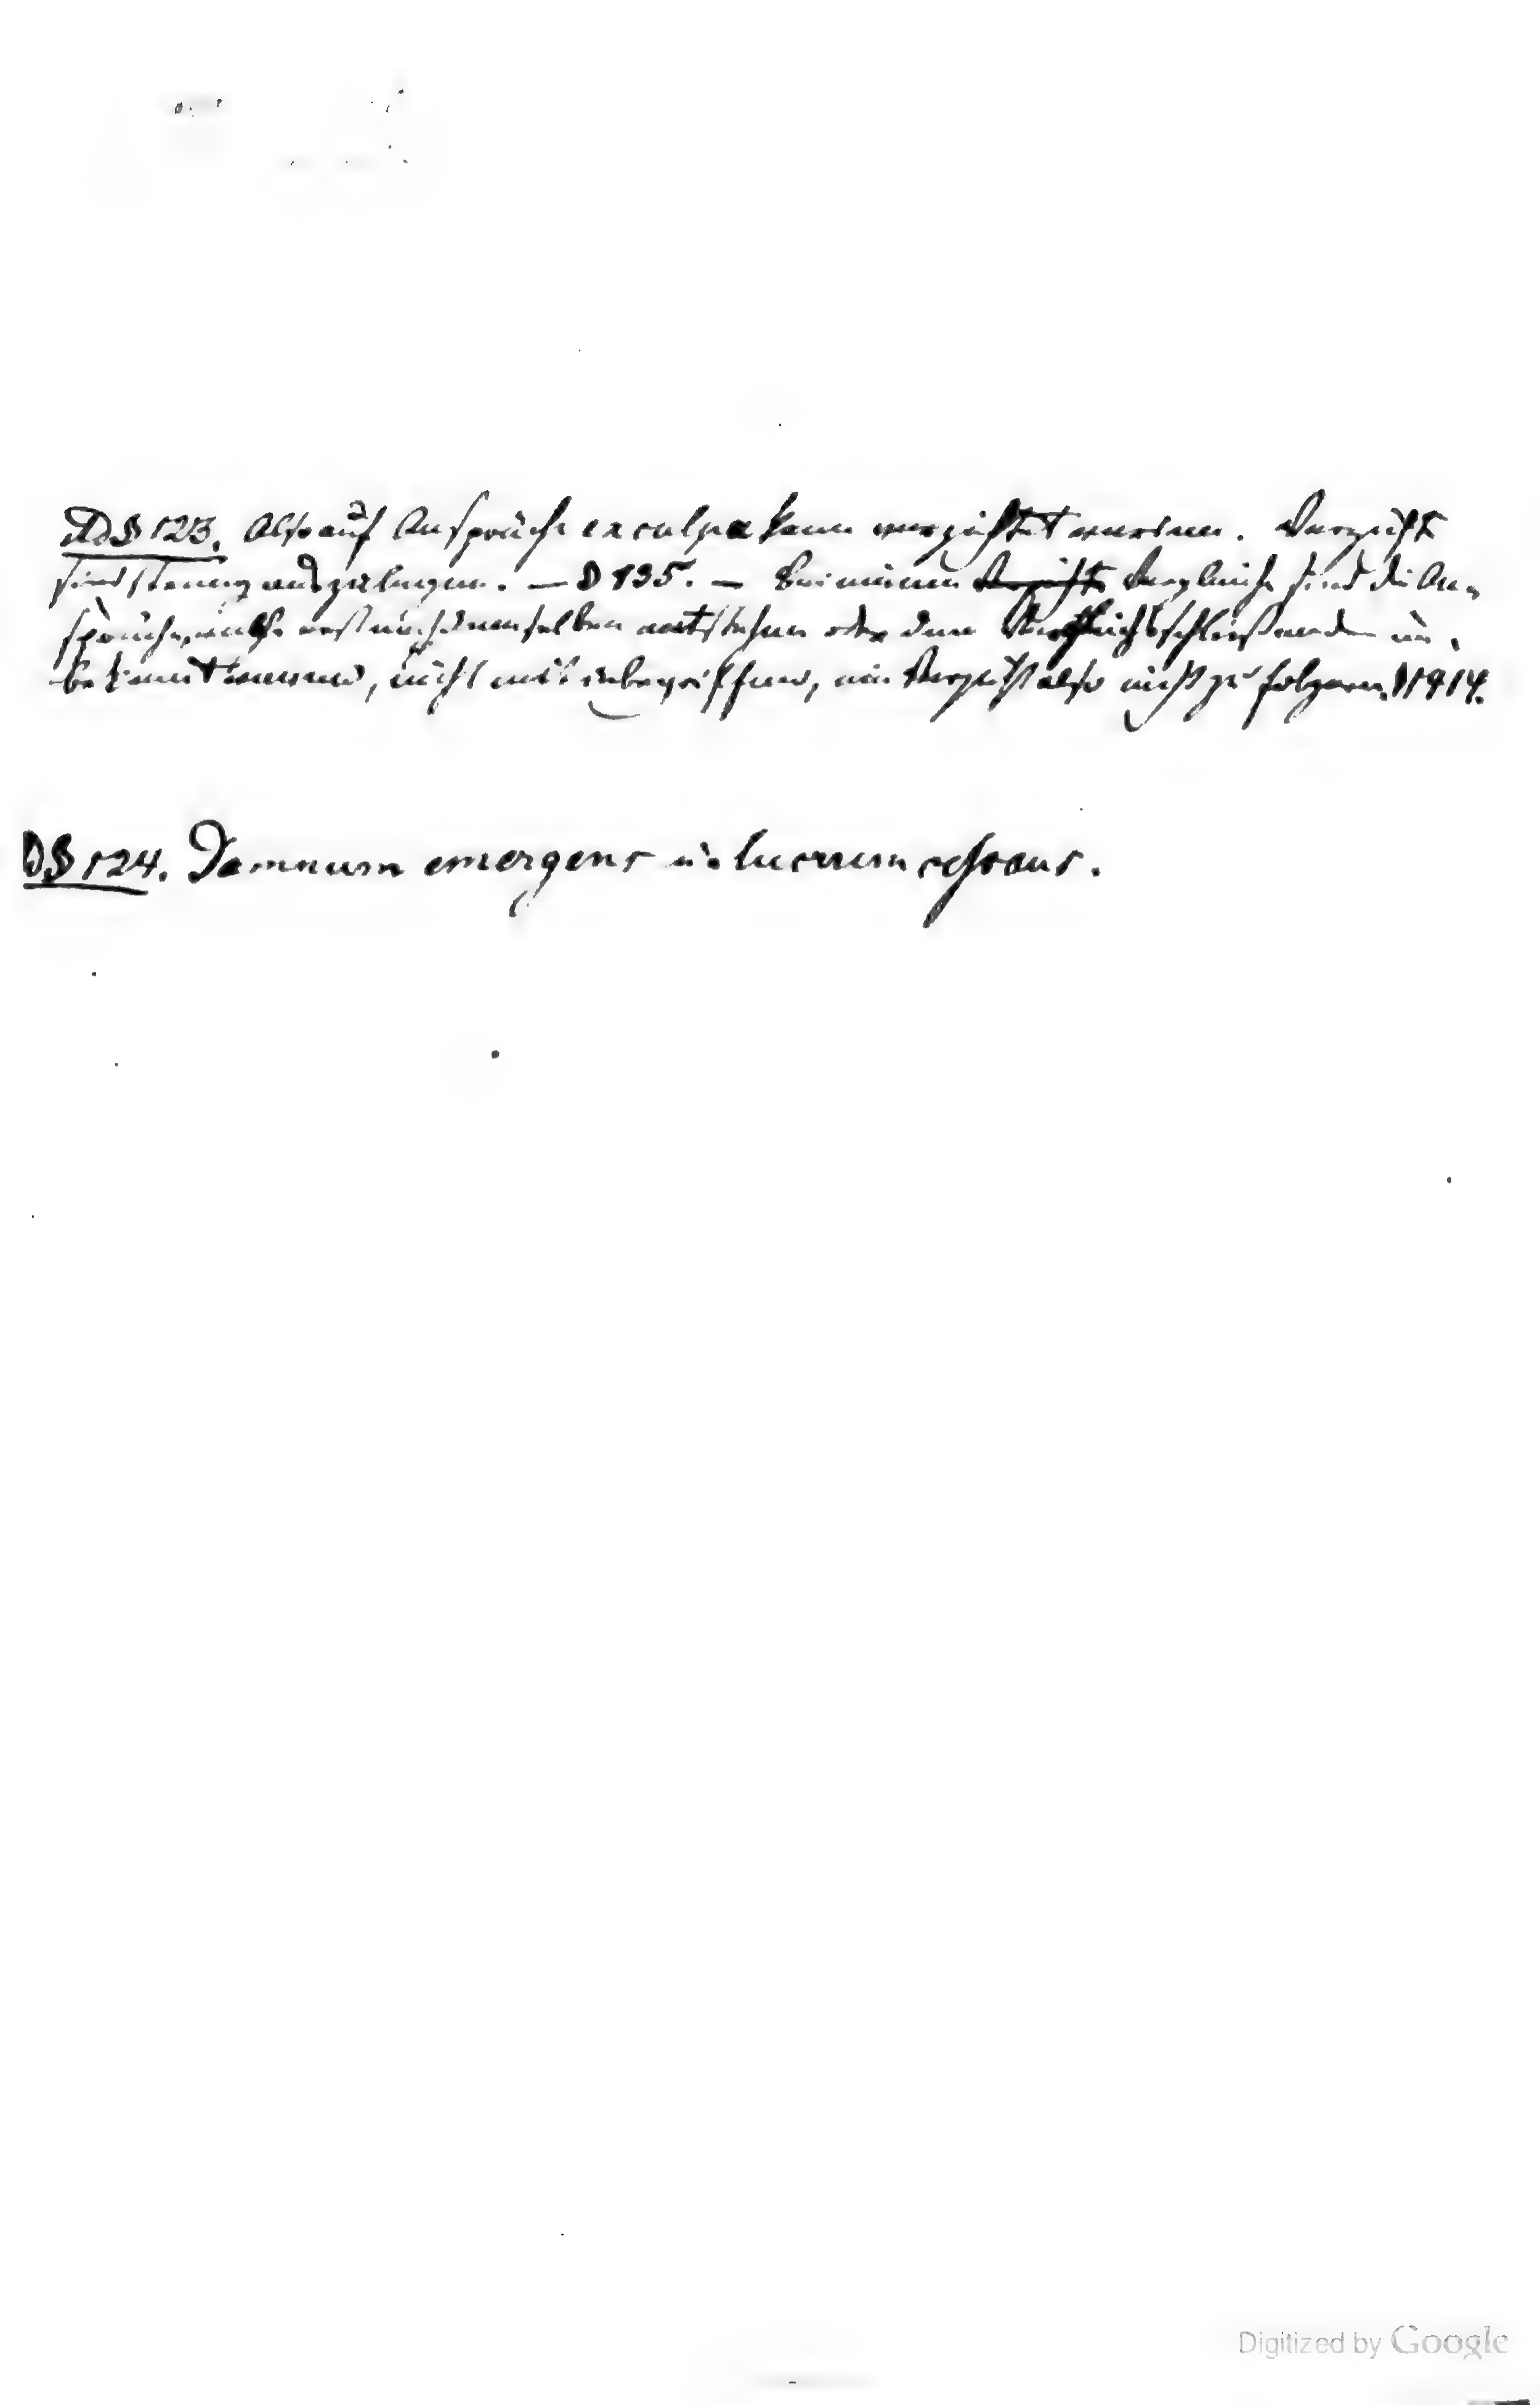 Ad § 123. Also auf Ansprüche ex culpa kann verzichtet werden. Verzicht
sind streng auszulegen. — § 135. — Bei einem Verzicht Vergleiche sind die An-
sprüche, welche erst nach demselben entstehen oder dem Vergleichschließenden un-
bekannt waren, nicht mit inbegriffen, ein Verzicht also nicht zu folgern. § 1914.
D § 124. Damnum emergens u. lucrum cessans.
Digitized by Google